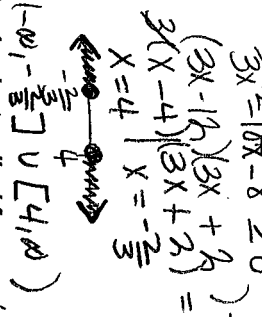 3x²-10x-8 ≥ 0
(3x-12)(3x+2) =
3(x-4)(3x+2)
x=4 x=-2/3
-2/3 4
(-∞, -2/3] ∪ [4,∞)